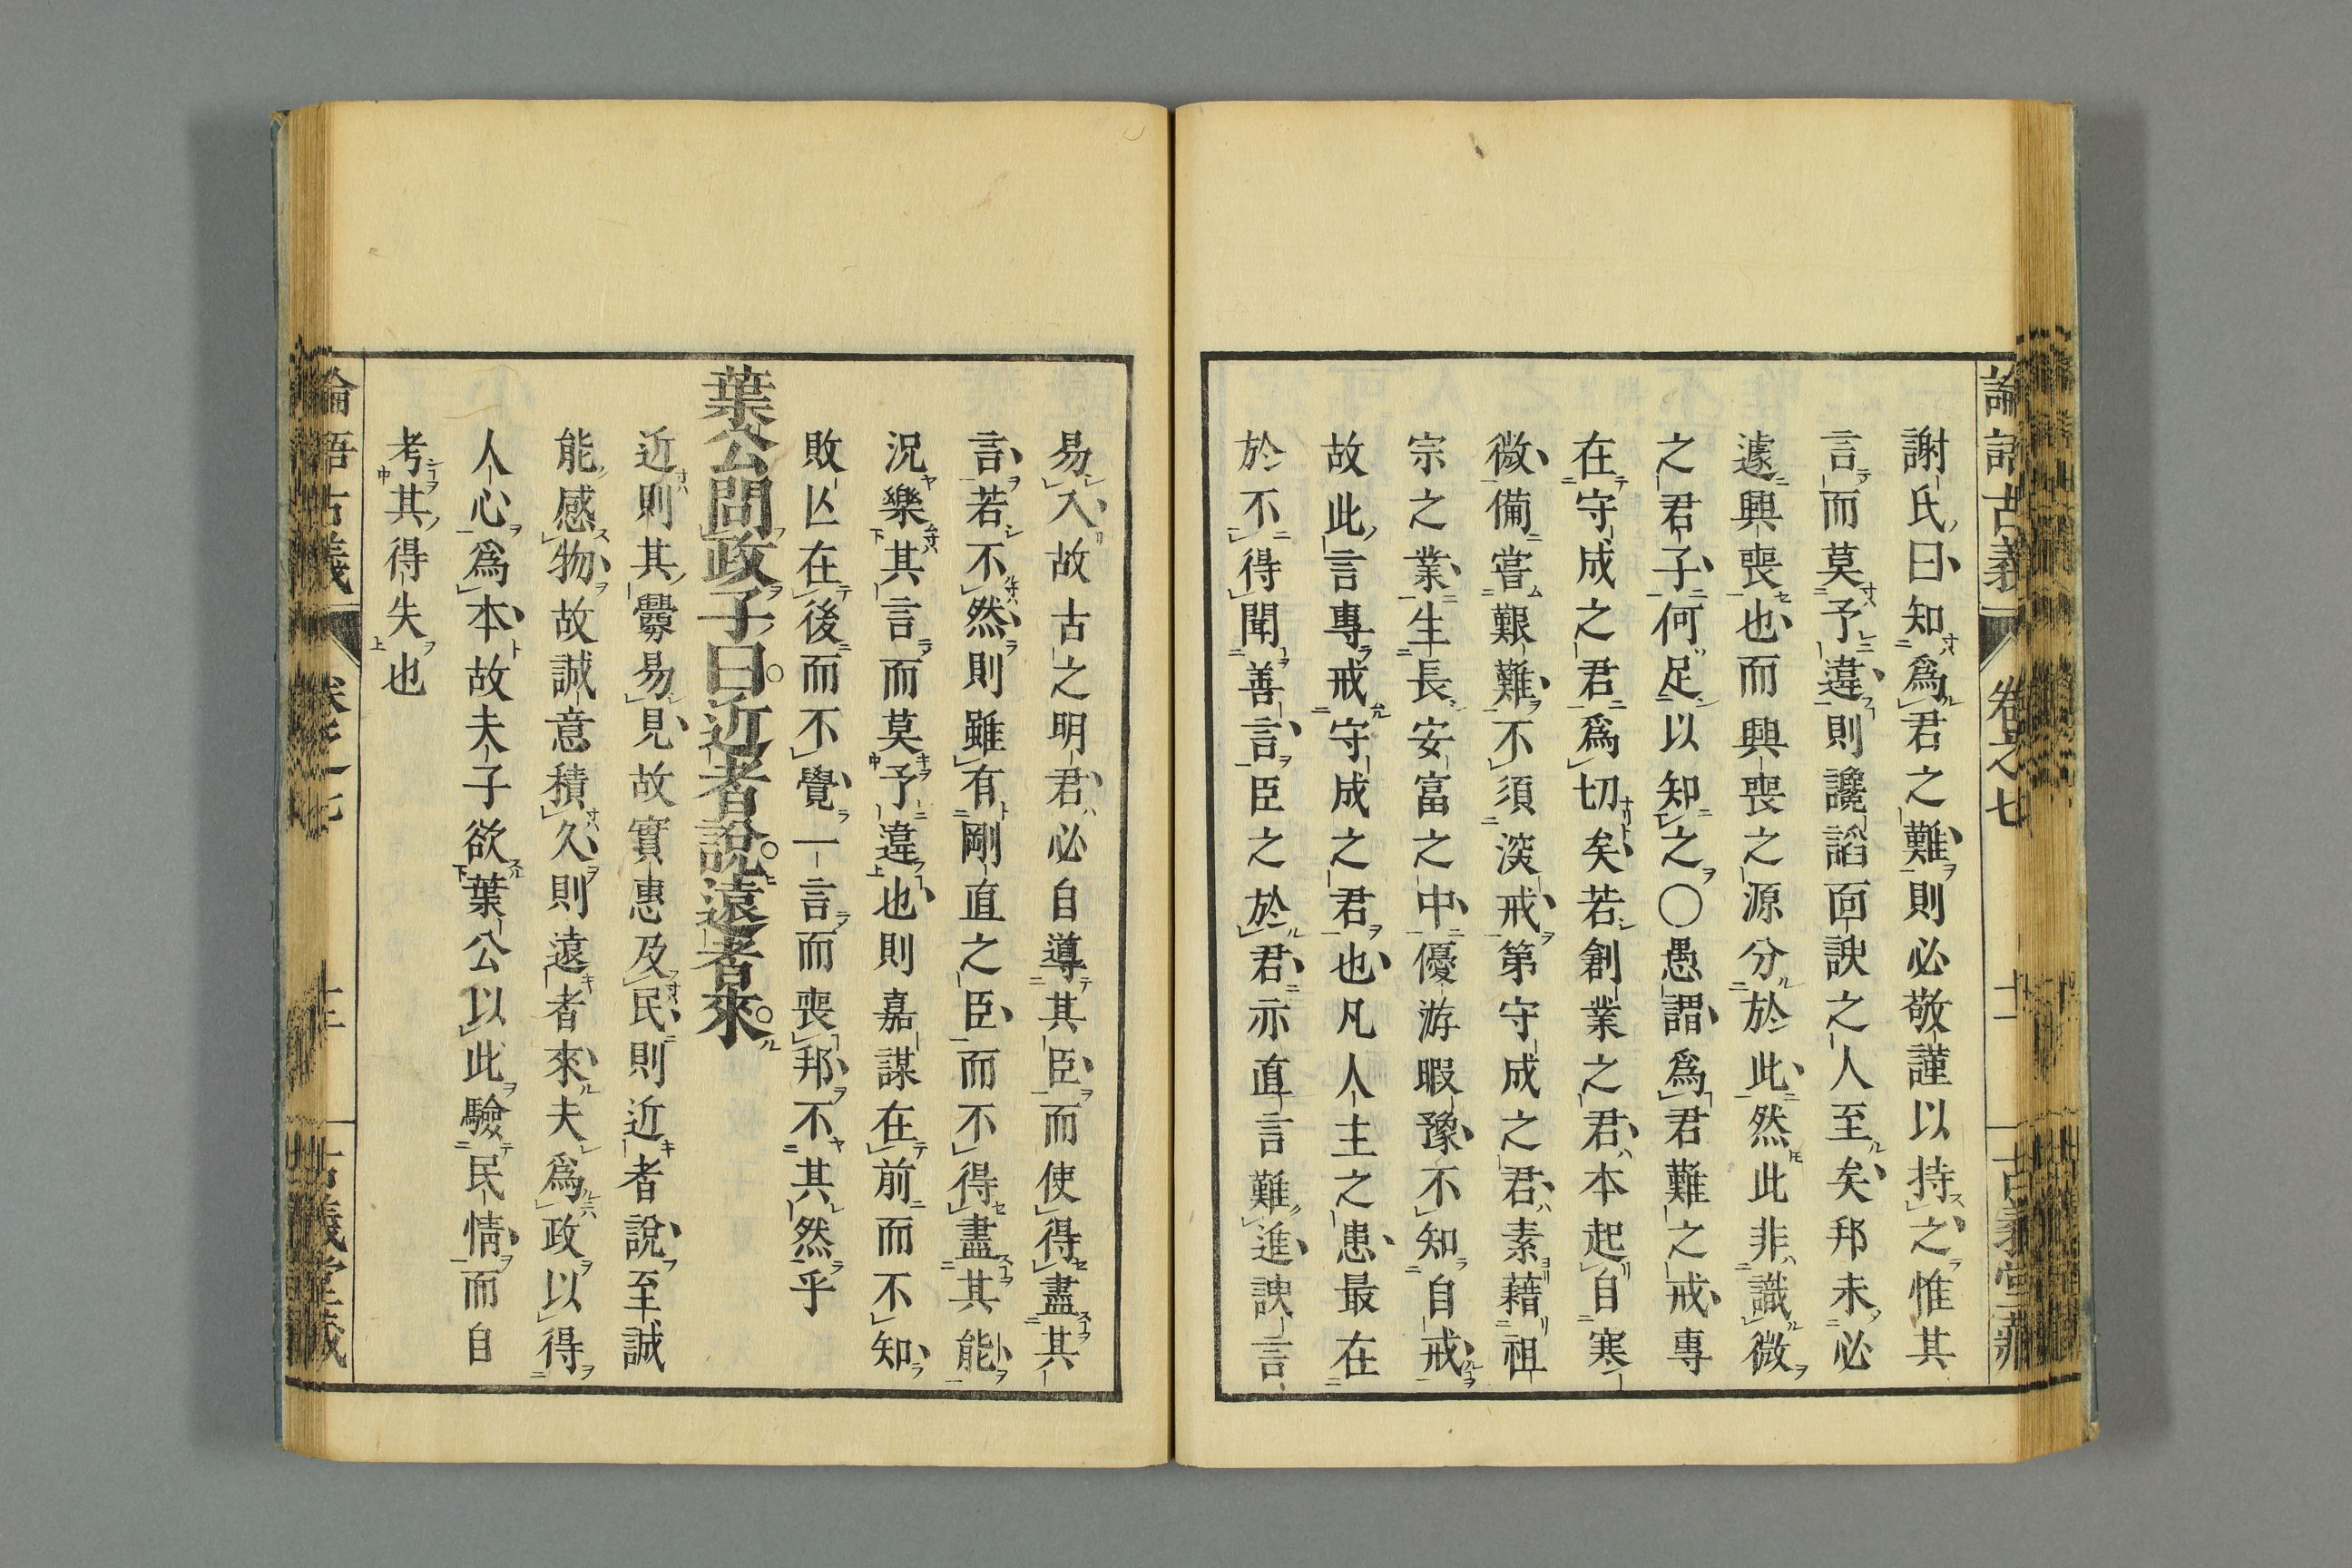 論語古義 卷之七 十二 古義堂藏
謝氏曰知爲君之難則必敬謹以持之惟其
言而莫予違則讒諂面諛之人至矣邦未必
遽興喪也而興喪之源分於此然此非識微
之君子何足以知之○愚謂爲君難之戒專
在守成之君爲切矣若創業之君本起自寒
微備嘗艱難不須深戒第守成之君素藉祖
宗之業生長安富之中優游暇豫不知自戒
故此言專戒守成之君也凡人主之患最在
於不得聞善言臣之於君亦直言難進諛言
易入故古之明君必自導其臣而使得盡其
言若不然則雖有剛直之臣而不得盡其能
況樂其言而莫予違也則嘉謀在前而不知
敗亾在後而不覺一言而喪邦不其然乎
葉公問政子曰近者說遠者來
近則其釁易見故實惠及民則近者說至誠
能感物故誠意積久則遠者來夫爲政以得
人心爲本故夫子欲葉公以此驗民情而自
考其得失也
論語古義 卷之七 十三 古義堂藏